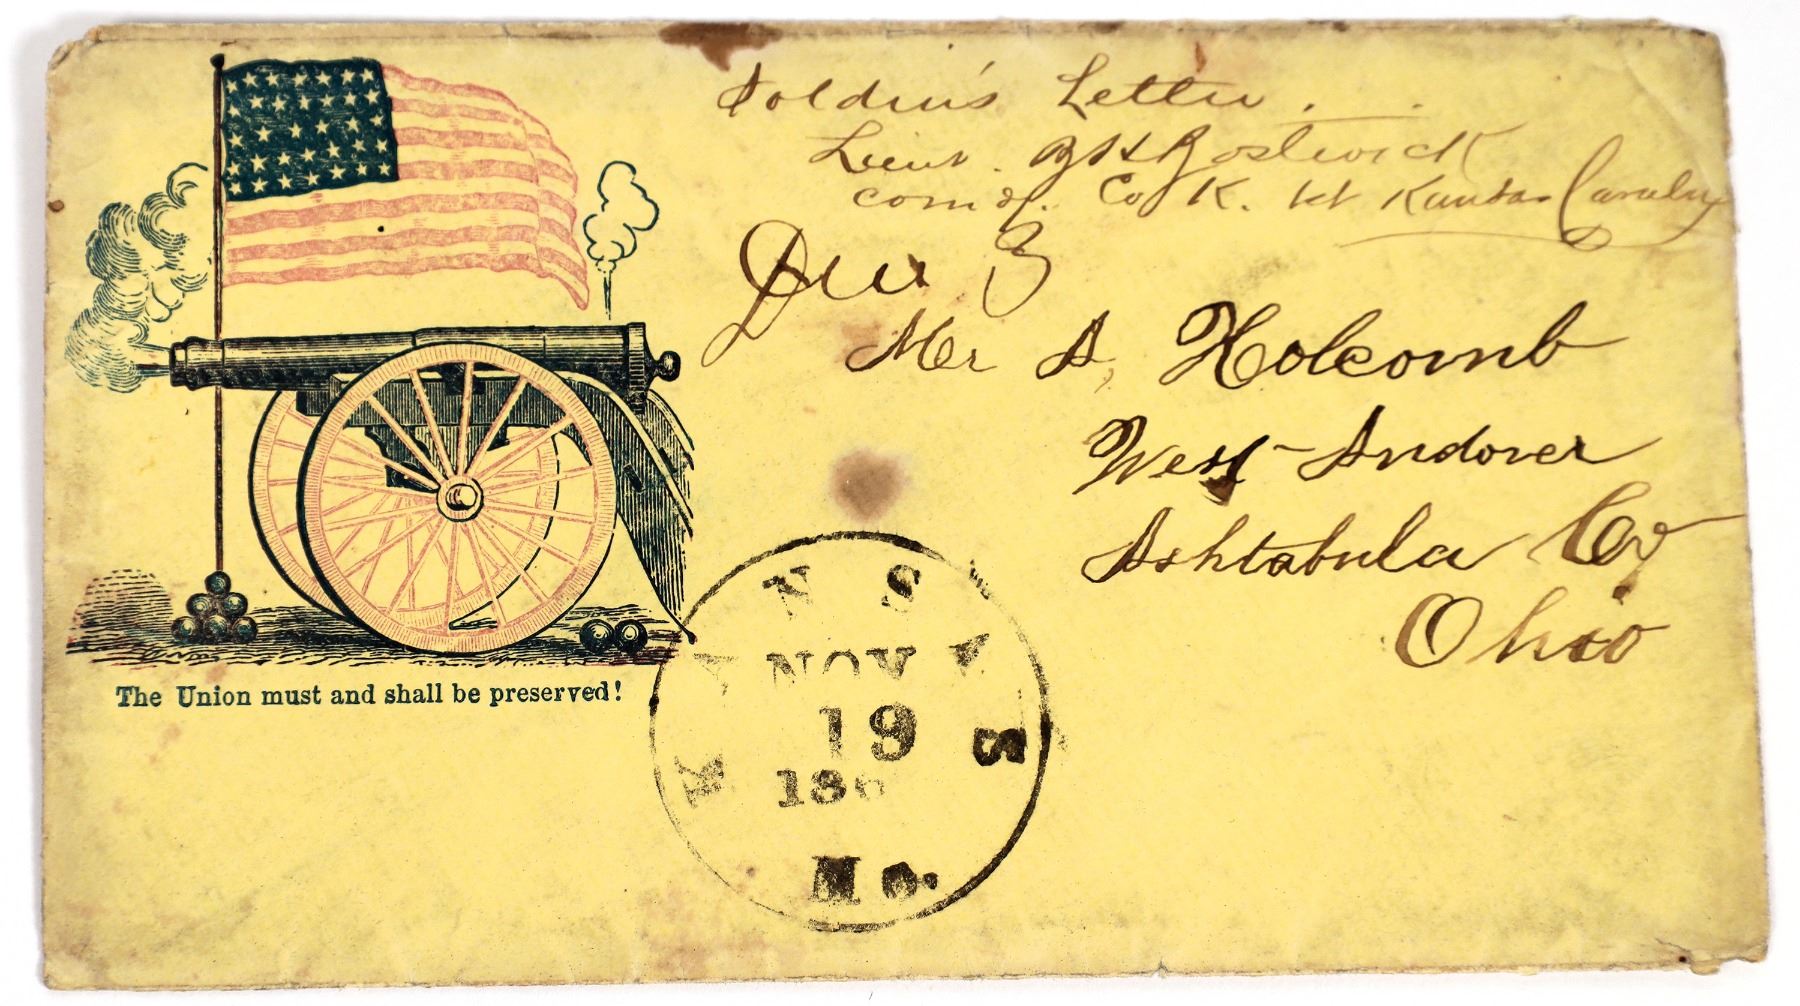 Soldier's Letter.
Lieut. Bostwick
comd. Co K. 1st Kansas Cavalry
Due 3
Mr A, Holcomb
West-Andover
Ashtabula Co
Ohio
The Union must and shall be preserved!
KANSAS
NOV
19
186
Mo.